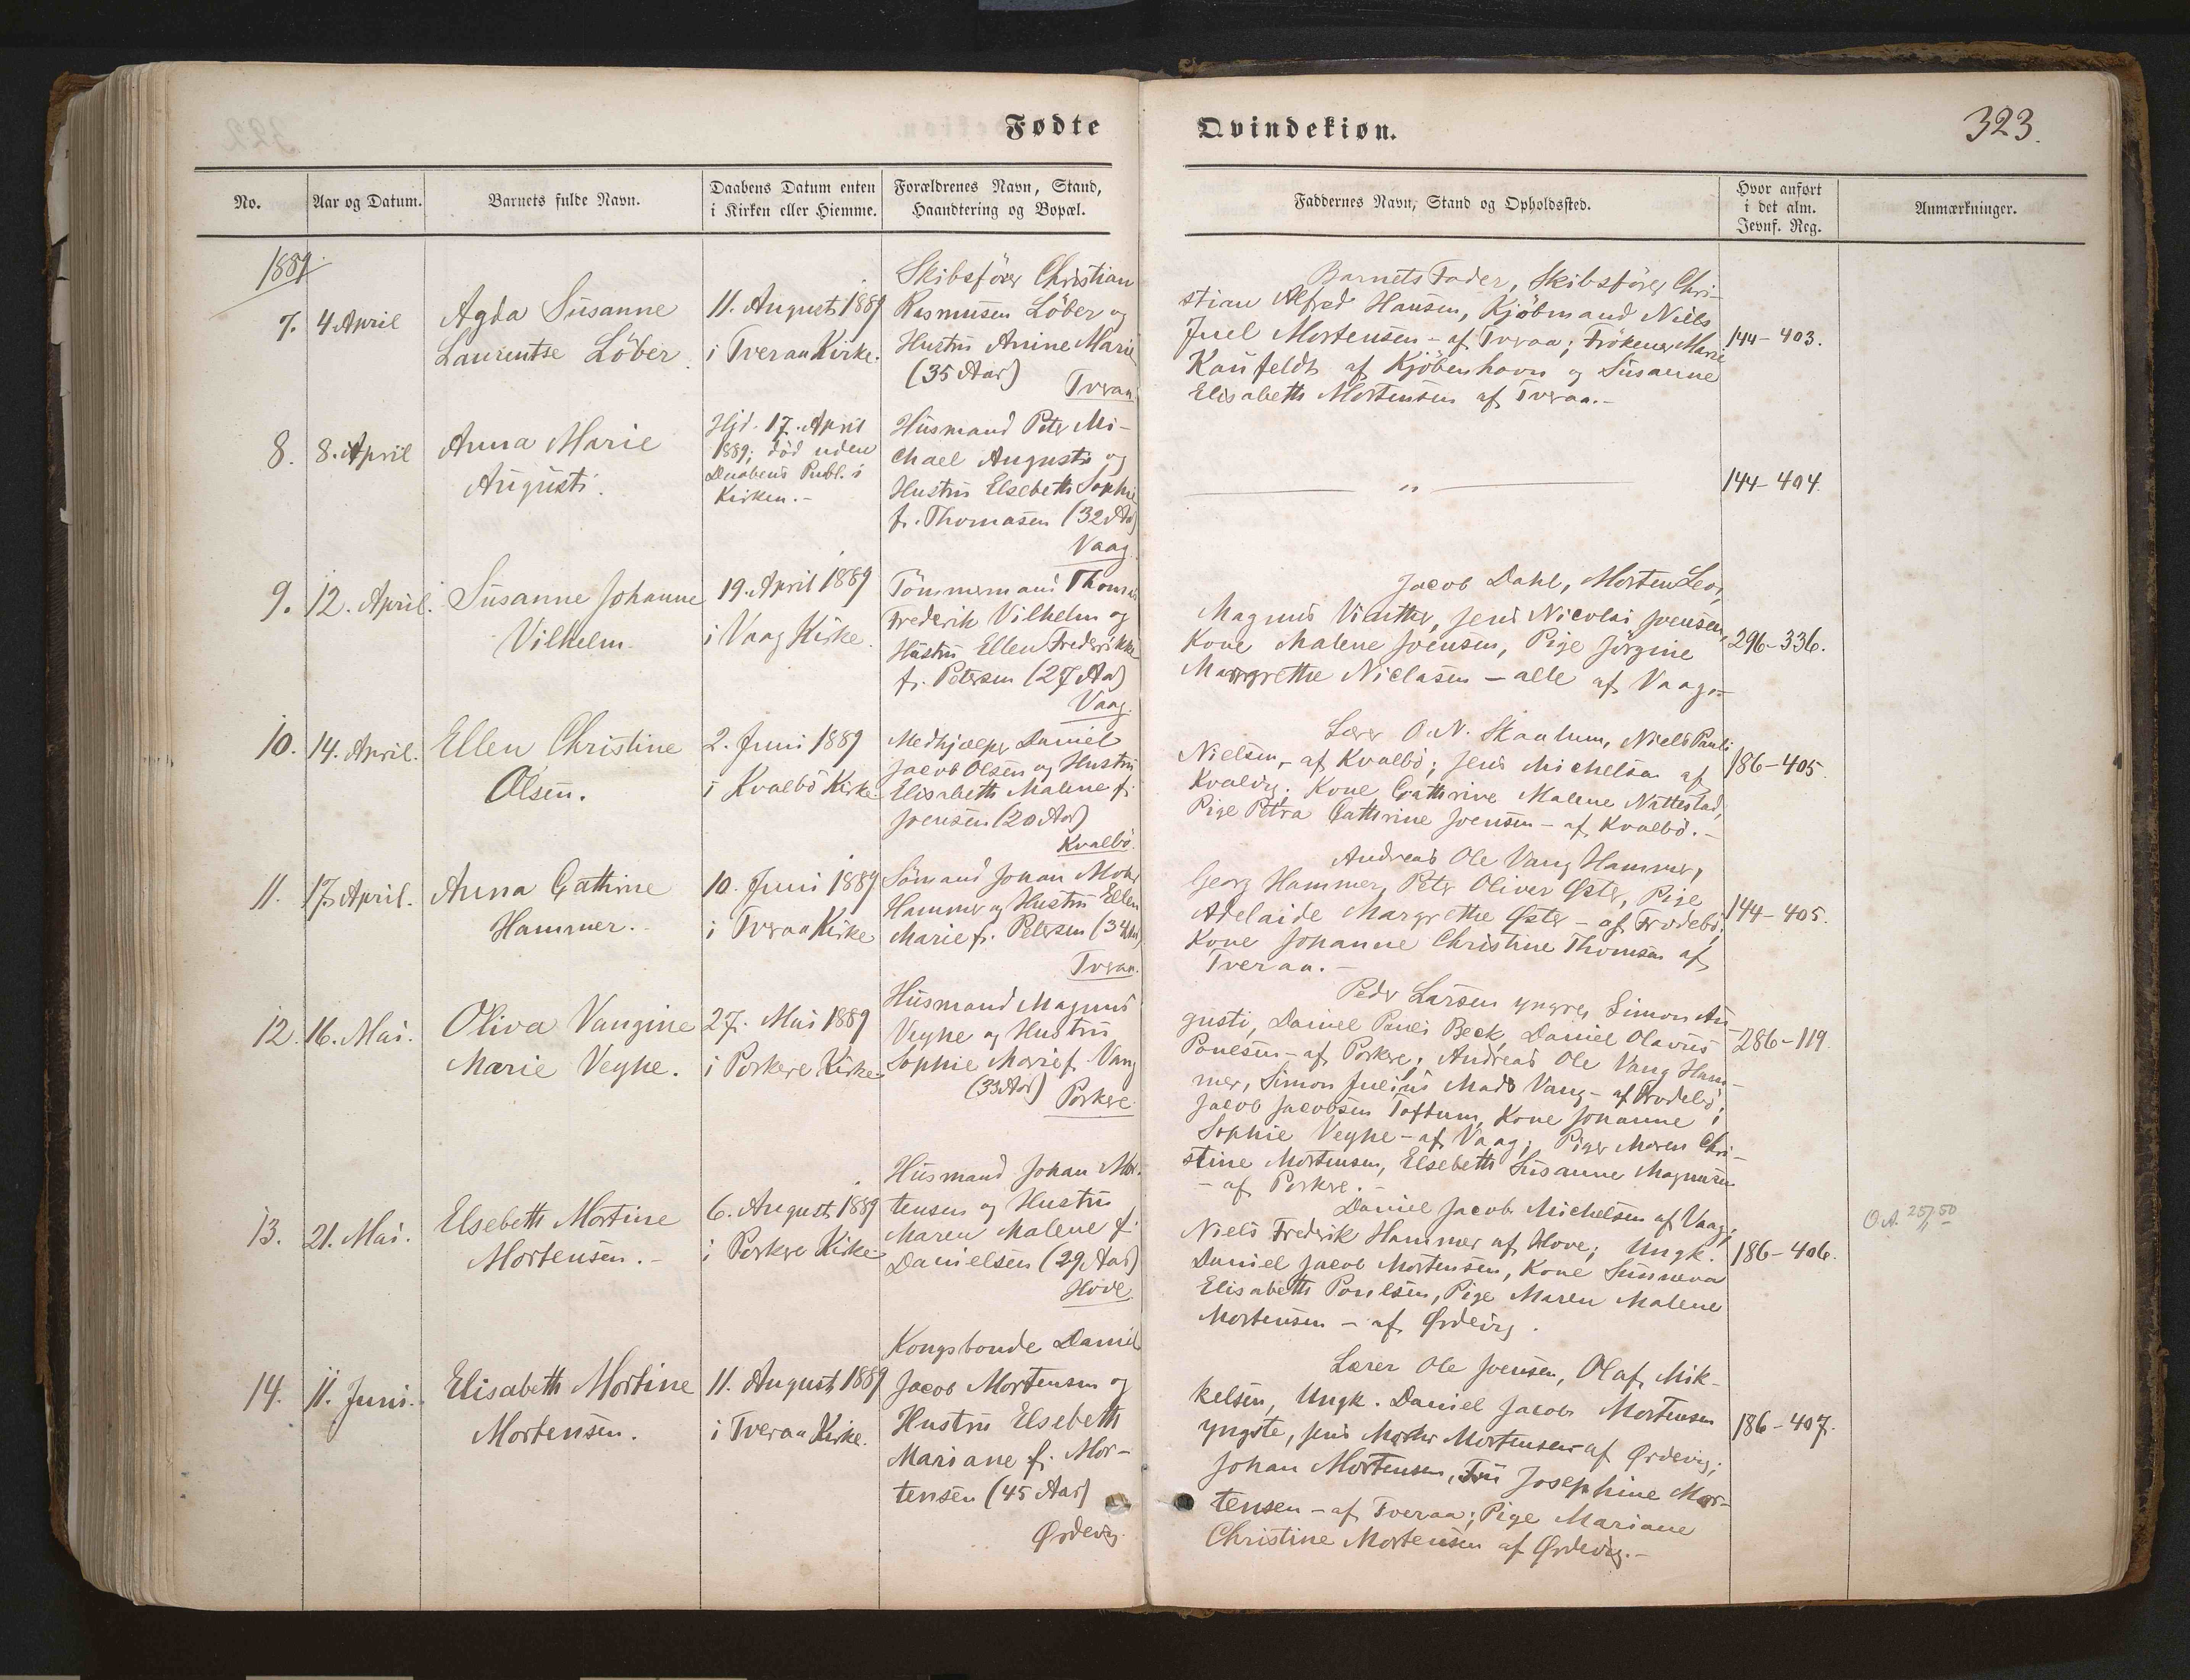 Fødte
Qvindekiøn.
323.
No.
Aar og Datum.
Barnets fulde Navn.
Daabens Datum enten
i Kirken eller Hiemme.
Forældrenes Navn, Stand,
Haandtering og Bopæl.
Faddernes Navn, Stand og Opholdssted.
Hvor anført
i det alm.
Jevnf. Reg.
Anmærkninger.
1889
7.
4 April
Agda Susanne
Laurentse Löber
11. August 1889
i Tveraa Kirke.
Skibsförer Christian
Rasmusen Löber og
Hustru Anine Marie
(35 Aar)
Tveraa
Barnets Fader, Skibsförer Chri-
stian Alfred Hansen, Kjöbmand Niels
Juel Mortensen - af Tveraa; Frökener Marie
Kaufeldt af Kjöbenhavn og Susanne
Elisabeth Mortensen af Tveraa.-
144-403.
8.
8. April
Anna Marie
Augusti.
Hjd. 17. April
1889; död uden
Daabens Publ. i
Kirken.-
Husmand Peter Mi-
chael Augusti og
Hustru Elsebeth Sophie
f. Thomasen (32 Aar)
Vaag.
"
144-404.
9.
12. April.
Susanne Johanne
Vilhelm.
19. April 1889
i Vaag Kirke.
Tömmermand Thomas
Frederik Vilhelm og
Hustru Ellen Frederikke
f. Petersen (27 Aar)
Vaag.
Jacob Dahl, Morten Leo,
Magnus Vinther, Jens Nicolai Joensen,
Kone Malene Joensen, Pige Jörgine
Margrethe Niclasen - alle af Vaag.-
296-336.
10.
14. April.
Ellen Christine
Olsen.
2. Juni 1889
i Kvalbö Kirke.
Medhjælper Daniel
Jacob Olsen og Hustru
Elisabeth Malene f.
Joensen (20 Aar)
Kvalbö.
Lærer O. N. Skaalum, Niels Pauli
Nielsen, - af Kvalbö; Jens Michelsen af
Kvalvig. Kone Cathrine Malene Nattestad,
Pige Petra Cathrine Joensen - af Kvalbö.-
186-405.
11.
17. April.
Anna Cathrine
Hammer.
10. Juni 1889
i Tveraa Kirke
Sömand Johan Mohr
Hammer og Hustru Ellen
Marie f. Petersen (34 Aar)
Tveraa.
Andreas Ole Vang Hammer,
Georg Hammer, Peter Oliver Øster, Pige
Adelaide Margrethe Øster - af Frodebö;
Kone Johanne Christine Thomsen af
Tveraa.-
144-405.
12.
16. Mai.
Oliva Vangine
Marie Veyhe.
27. Mai 1889
i Porkere Kirke.
Husmand Magnus
Veyhe og Hustru
Sophie Marie f. Vang
(33 Aar)
Porkere
Peder Larsen yngre, Simon Au-
gusti, Daniel Pauli Beck, Daniel Olavus
Poulsen - af Porkere; Andreas Ole Vang Ham-
mer, Simon Julius Mads Vang - af Frodebö;
Jacob Jacobsen Toftum, Kone Johanne
Sophie Veyhe - af Vaag; Piger Maren Chri-
stine Mortensen, Elsebeth Susanne Magnusen
- af Porkere.-
286-119.
13.
21. Mai.
Elsebeth Mortine
Mortensen.-
6. August 1889
i Porkere Kirke
Husmand Johan Mor-
tensen og Hustru
Maren Malene f.
Danielsen (29 Aar)
Hove.
Daniel Jacob Michelsen af Vaag;
Niels Frederik Hammer af Hove; Ungk.
Daniel Jacob Mortensen, Kone Sunneva
Elisabeth Poulsen, Pige Maren Malene
Mortensen - af Ørdevig.
186-406.
14.
11. Juni.
Elisabeth Mortine
Mortensen.
11. August 1889
i Tveraa Kirke.
Kongsbonde Daniel
Jacob Mortensen og
Hustru Elsebeth
Mariane f. Mor-
tensen (45 Aar)
Ørdevig.
Lærer Ole Joensen, Olaf Mik-
kelsen, Ungk. Daniel Jacob Mortensen
yngste, Jens Mortensen af Ørdevig;
Johan Mortensen, Fru Josephine Mor-
tensen - af Tveraa; Pige Mariane
Christine Mortensen af Ørdevig.-
186-407.